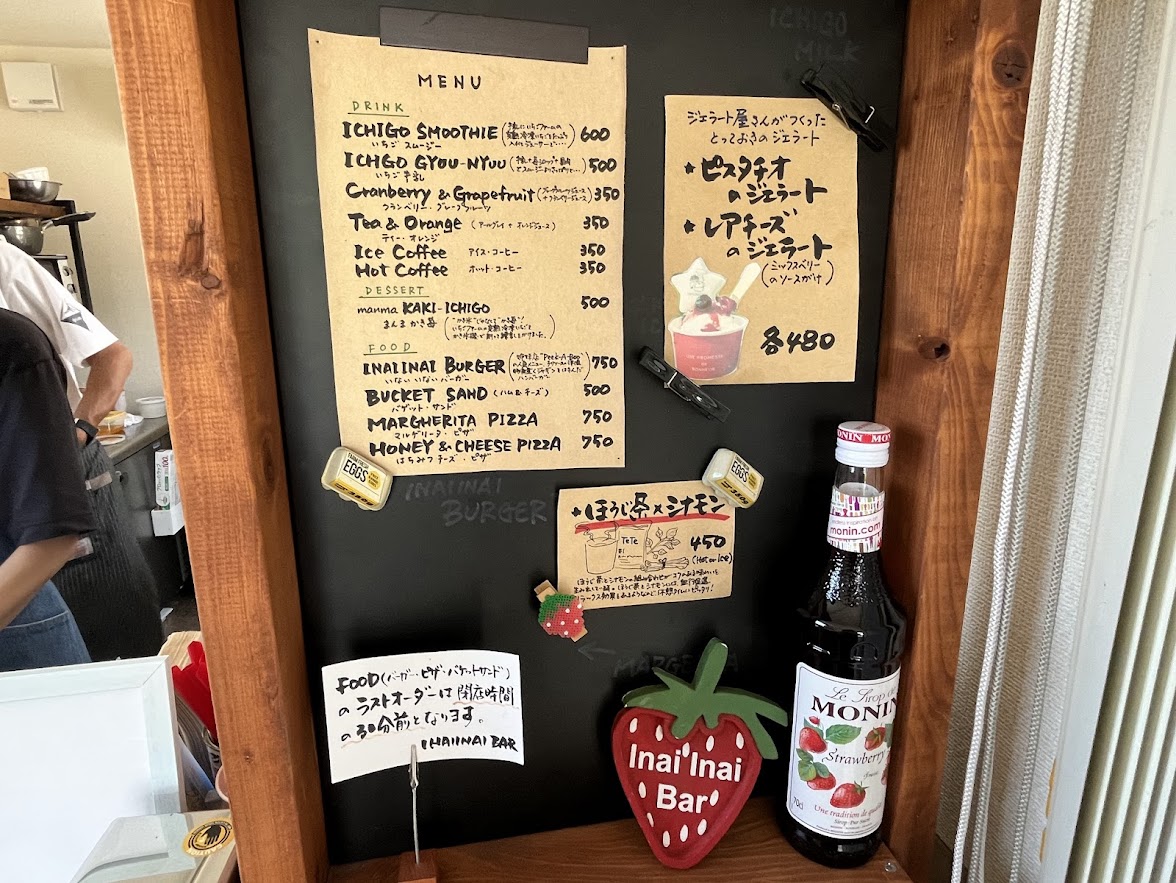 MENU
DRINK
ICHIGO SMOOTHIE 600
いちご スムージー
ICHGO GYUU-NYUU 500
いちご 牛乳
Cranberry & Grapefruit 350
クランベリー・グレープフルーツ
Tea & Orange (アールグレイ + オレンジジュース) 350
ティー・オレンジ
Ice Coffee アイス・コーヒー 350
Hot Coffee ホット・コーヒー 350
DESSERT
manma KAKI-ICHIGO 500
まんま かき苺
FOOD
INAIINAI BURGER 750
いない いない バーガー
BUCKET SAND (ハム&チーズ) 500
バゲット・サンド
MARGHERITA PIZZA 750
マルゲリータ・ピザ
HONEY & CHEESE PIZZA 750
はちみつチーズ・ピザ
ICHIGO
MILK
ジェラート屋さんがつくった
とっておきのジェラート
★ピスタチオ
のジェラート
★レアチーズ
のジェラート
(ミックスベリー
のソースがけ)
各480
EGGS
EGGS
INAIINAI
BURGER
★ほうじ茶×シナモン
TeTe
450
(Hot or Ice)
FOOD(バーガー・ピザ・バケットサンド)
のラストオーダーは閉店時間
の30分前となります。
INAIINAI BAR
Inai Inai
Bar
MONIN
monin.com
Le Sirop de
MONIN
Strawberry
70cl
Une tradition de